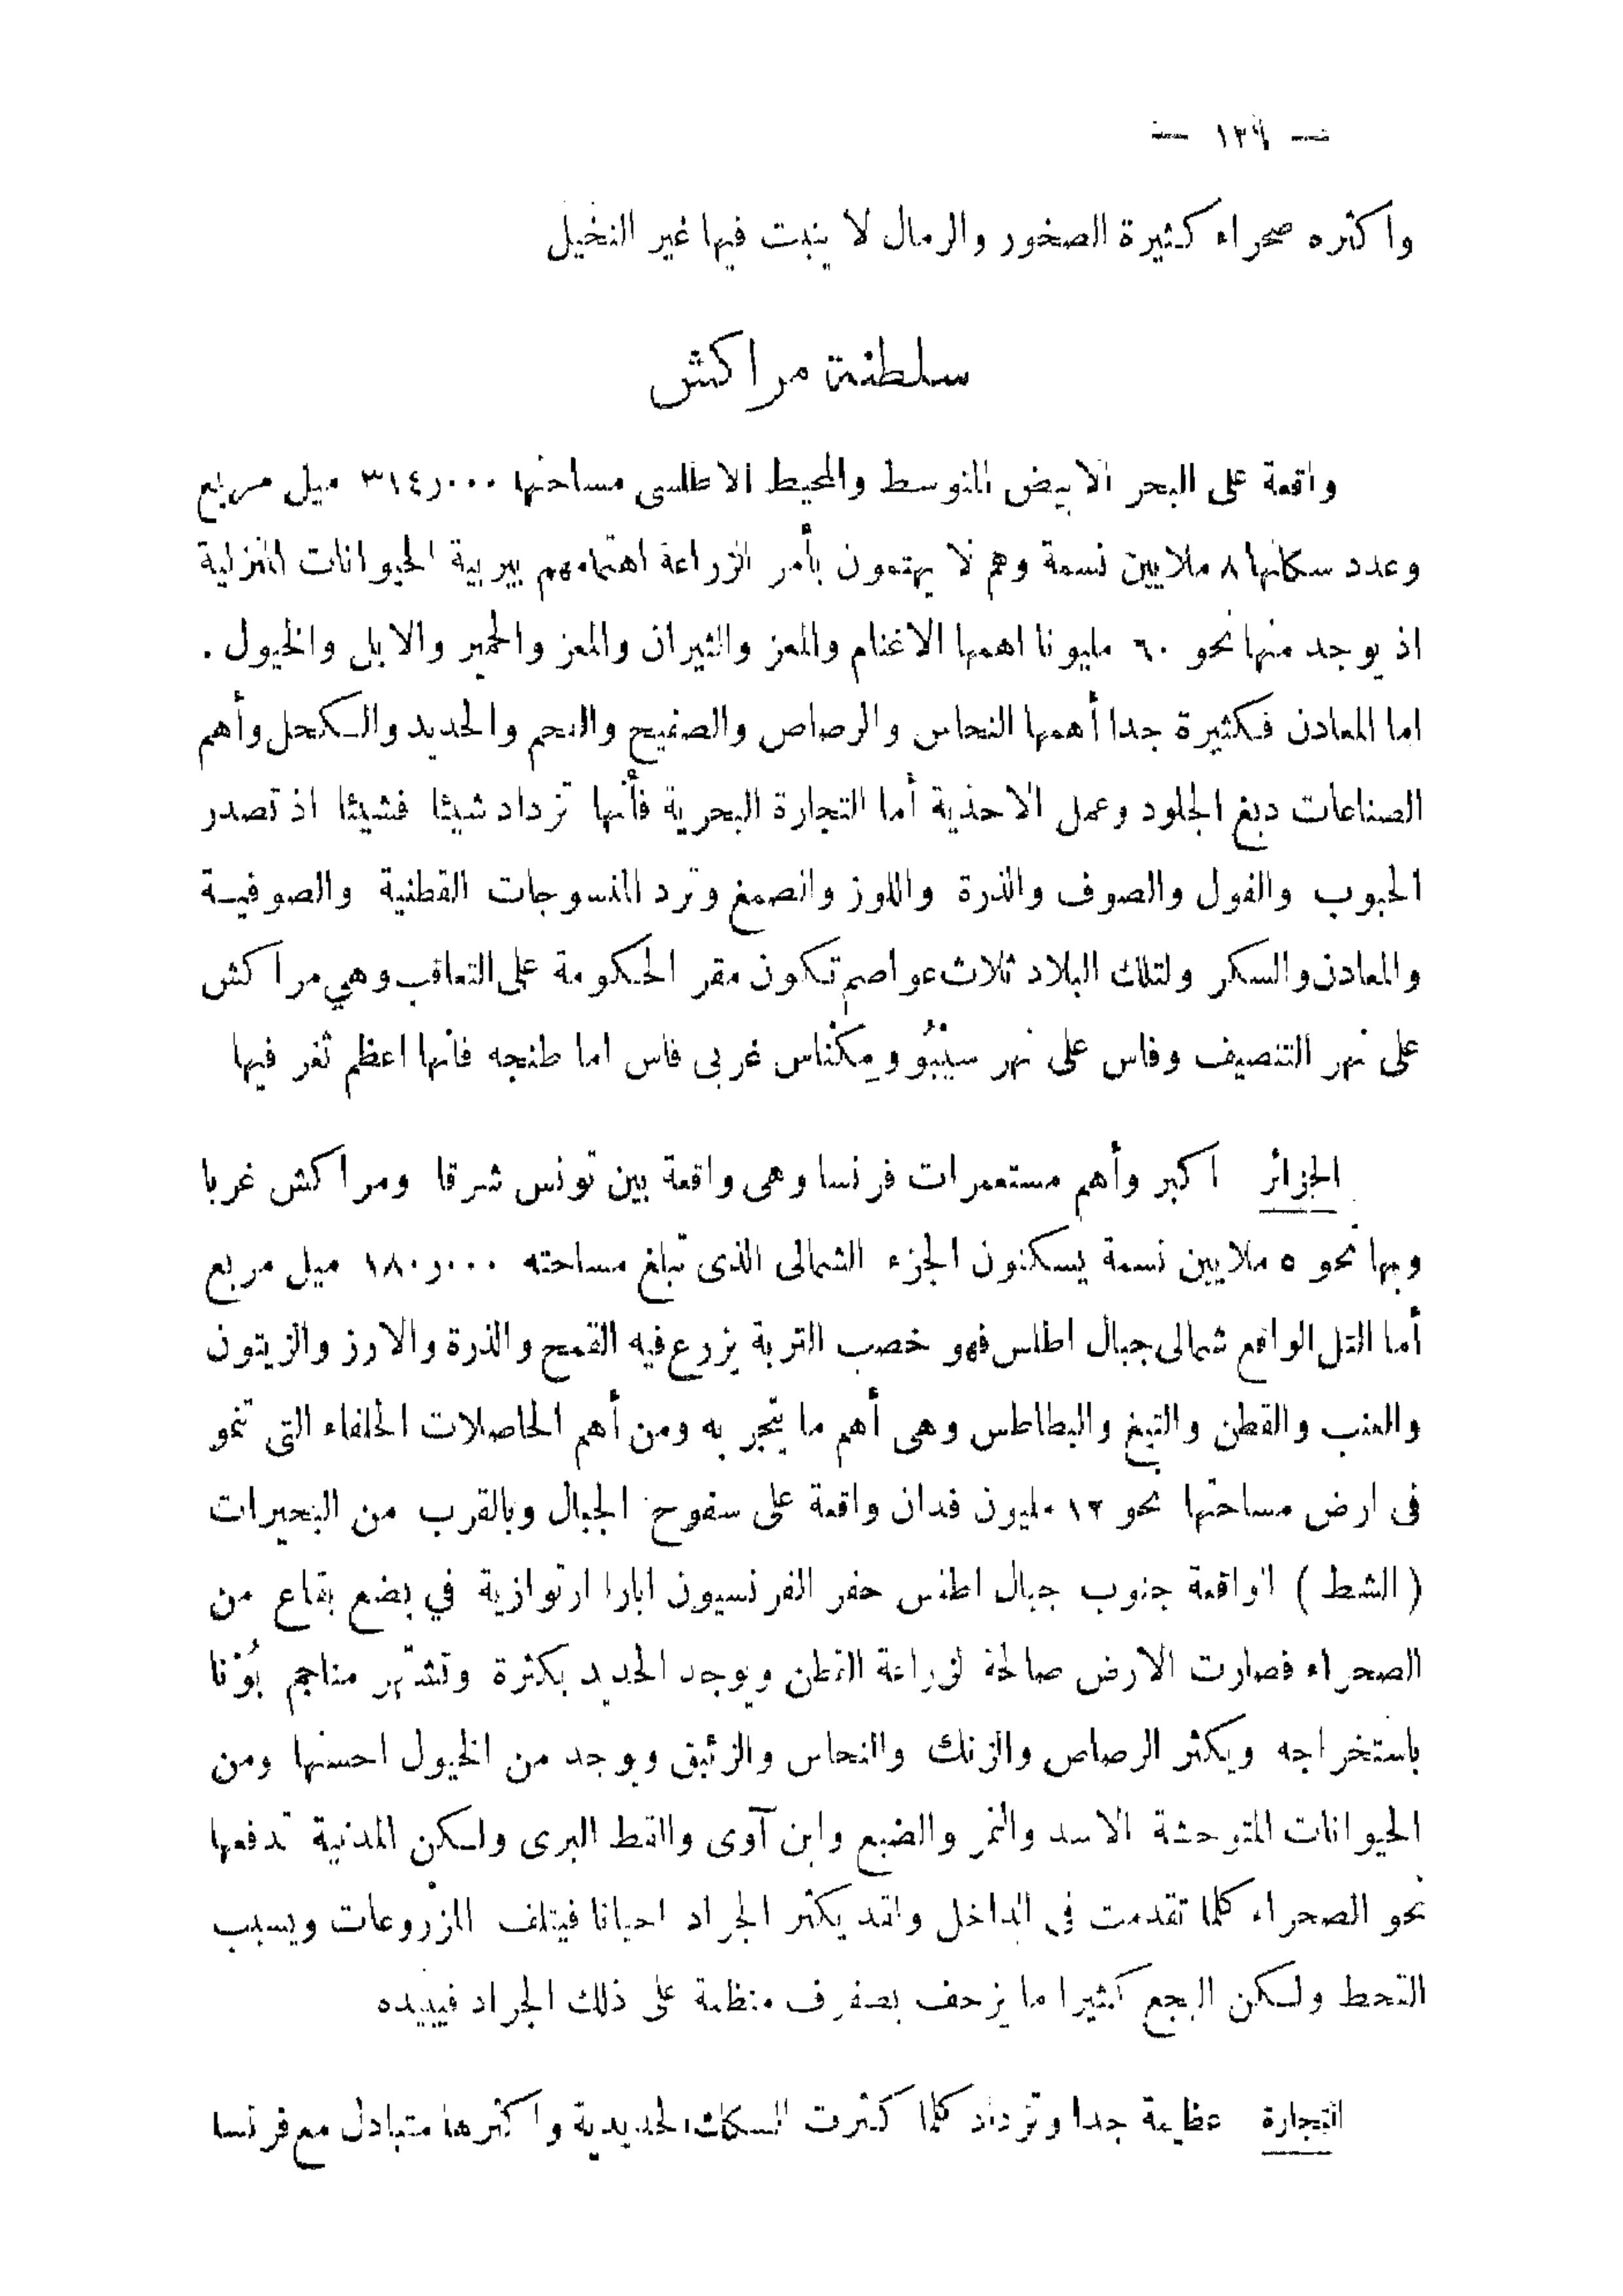 — ١٣٩ —
واكثره صحراء كثيرة الصخور والرمال لا ينبت فيها غير النخيل
سلطنة مراكش
واقعة على البحر الابيض المتوسط والمحيط الاطلسى مساحتها ٣١٤٫٠٠٠ ميل مربع
وعدد سكانها ٨ ملايين نسمة وهم لا يهتمون بأمر الزراعة اهتمامهم بيربية الحيوانات المنزلية
اذ يوجد منها نحو ٦٠ مليونا اهمها الاغنام والمعز والثيران والمعز والحمير والابل والخيول .
اما المعادن فكثيرة جدا أهمها النحاس والرصاص والصفيح والفحم والحديد والكحل وأهم
الصناعات دبغ الجلود وعمل الاحذية أما التجارة البحرية فأنها تزداد شيئا فشيئا اذ تصدر
الحبوب والفول والصوف والذرة واللوز والصمغ وترد المنسوجات القطنية والصوفية
والمعادن والسكر ولتلك البلاد ثلاث عواصم تكون مقر الحكومة على التعاقب وهي مراكش
على نهر التنصيف وفاس على نهر سيْبُو ومِكْناس غربى فاس اما طنجه فانها اعظم ثغر فيها
الجزائر اكبر وأهم مستعمرات فرنسا وهى واقعة بين تونس شرقا ومراكش غربا
وبها نحو ٥ ملايين نسمة يسكنون الجزء الشمالى الذى تبلغ مساحته ١٨٠٫٠٠٠ ميل مربع
أما التل الواقع شمالى جبال اطلس فهو خصب التربة يزرع فيه القمح والذرة والارز والزيتون
والعنب والقطن والتبغ والبطاطس وهى أهم ما يتجر به ومن أهم الحاصلات الحلفاء التى تنمو
فى ارض مساحتها نحو ١٢ مليون فدان واقعة على سفوح الجبال وبالقرب من البحيرات
( الشط ) الواقعة جنوب جبال اطلس حفر الفرنسيون ابارا ارتوازية في بضع بقاع من
الصحراء فصارت الارض صالحة لزراعة القطن ويوجد الحديد بكثرة وتشتهر مناجم بُوْنا
باستخراجه ويكثر الرصاص والزنك والنحاس والزئبق ويوجد من الخيول احسنها ومن
الحيوانات المتوحشة الاسد والنمر والضبع وابن آوى والقط البرى ولكن المدنية تدفعها
نحو الصحراء كلما تقدمت فى الداخل ولقد يكثر الجراد احيانا فيتلف المزروعات ويسبب
القحط ولكن البجع كثيرا ما يزحف بصفوف منظمة على ذلك الجراد فيبيده
التجارة عظيمة جدا وتزداد كلما كثرت السكك الحديدية واكثرها متبادل مع فرنسا